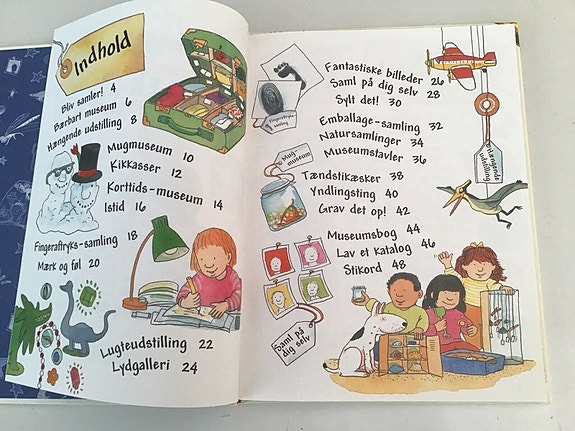 Indhold
Bliv samler! 4
Bærbart museum 6
Hængende udstilling 8
Mugmuseum 10
Kikkasser 12
Korttids-museum 14
Istid 16
Fingeraftryks-samling 18
Mærk og føl 20
Lugteudstilling 22
Lydgalleri 24
Fantastiske billeder 26
Saml på dig selv 28
Sylt det! 30
Emballage-samling 32
Natursamlinger 34
Museumstavler 36
Tændstikæsker 38
Yndlingsting 40
Grav det op! 42
Museumsbog 44
Lav et katalog 46
Stikord 48
Fingeraftryks
samling
Mug-
museum
Hængende
udstilling
Saml på
dig selv